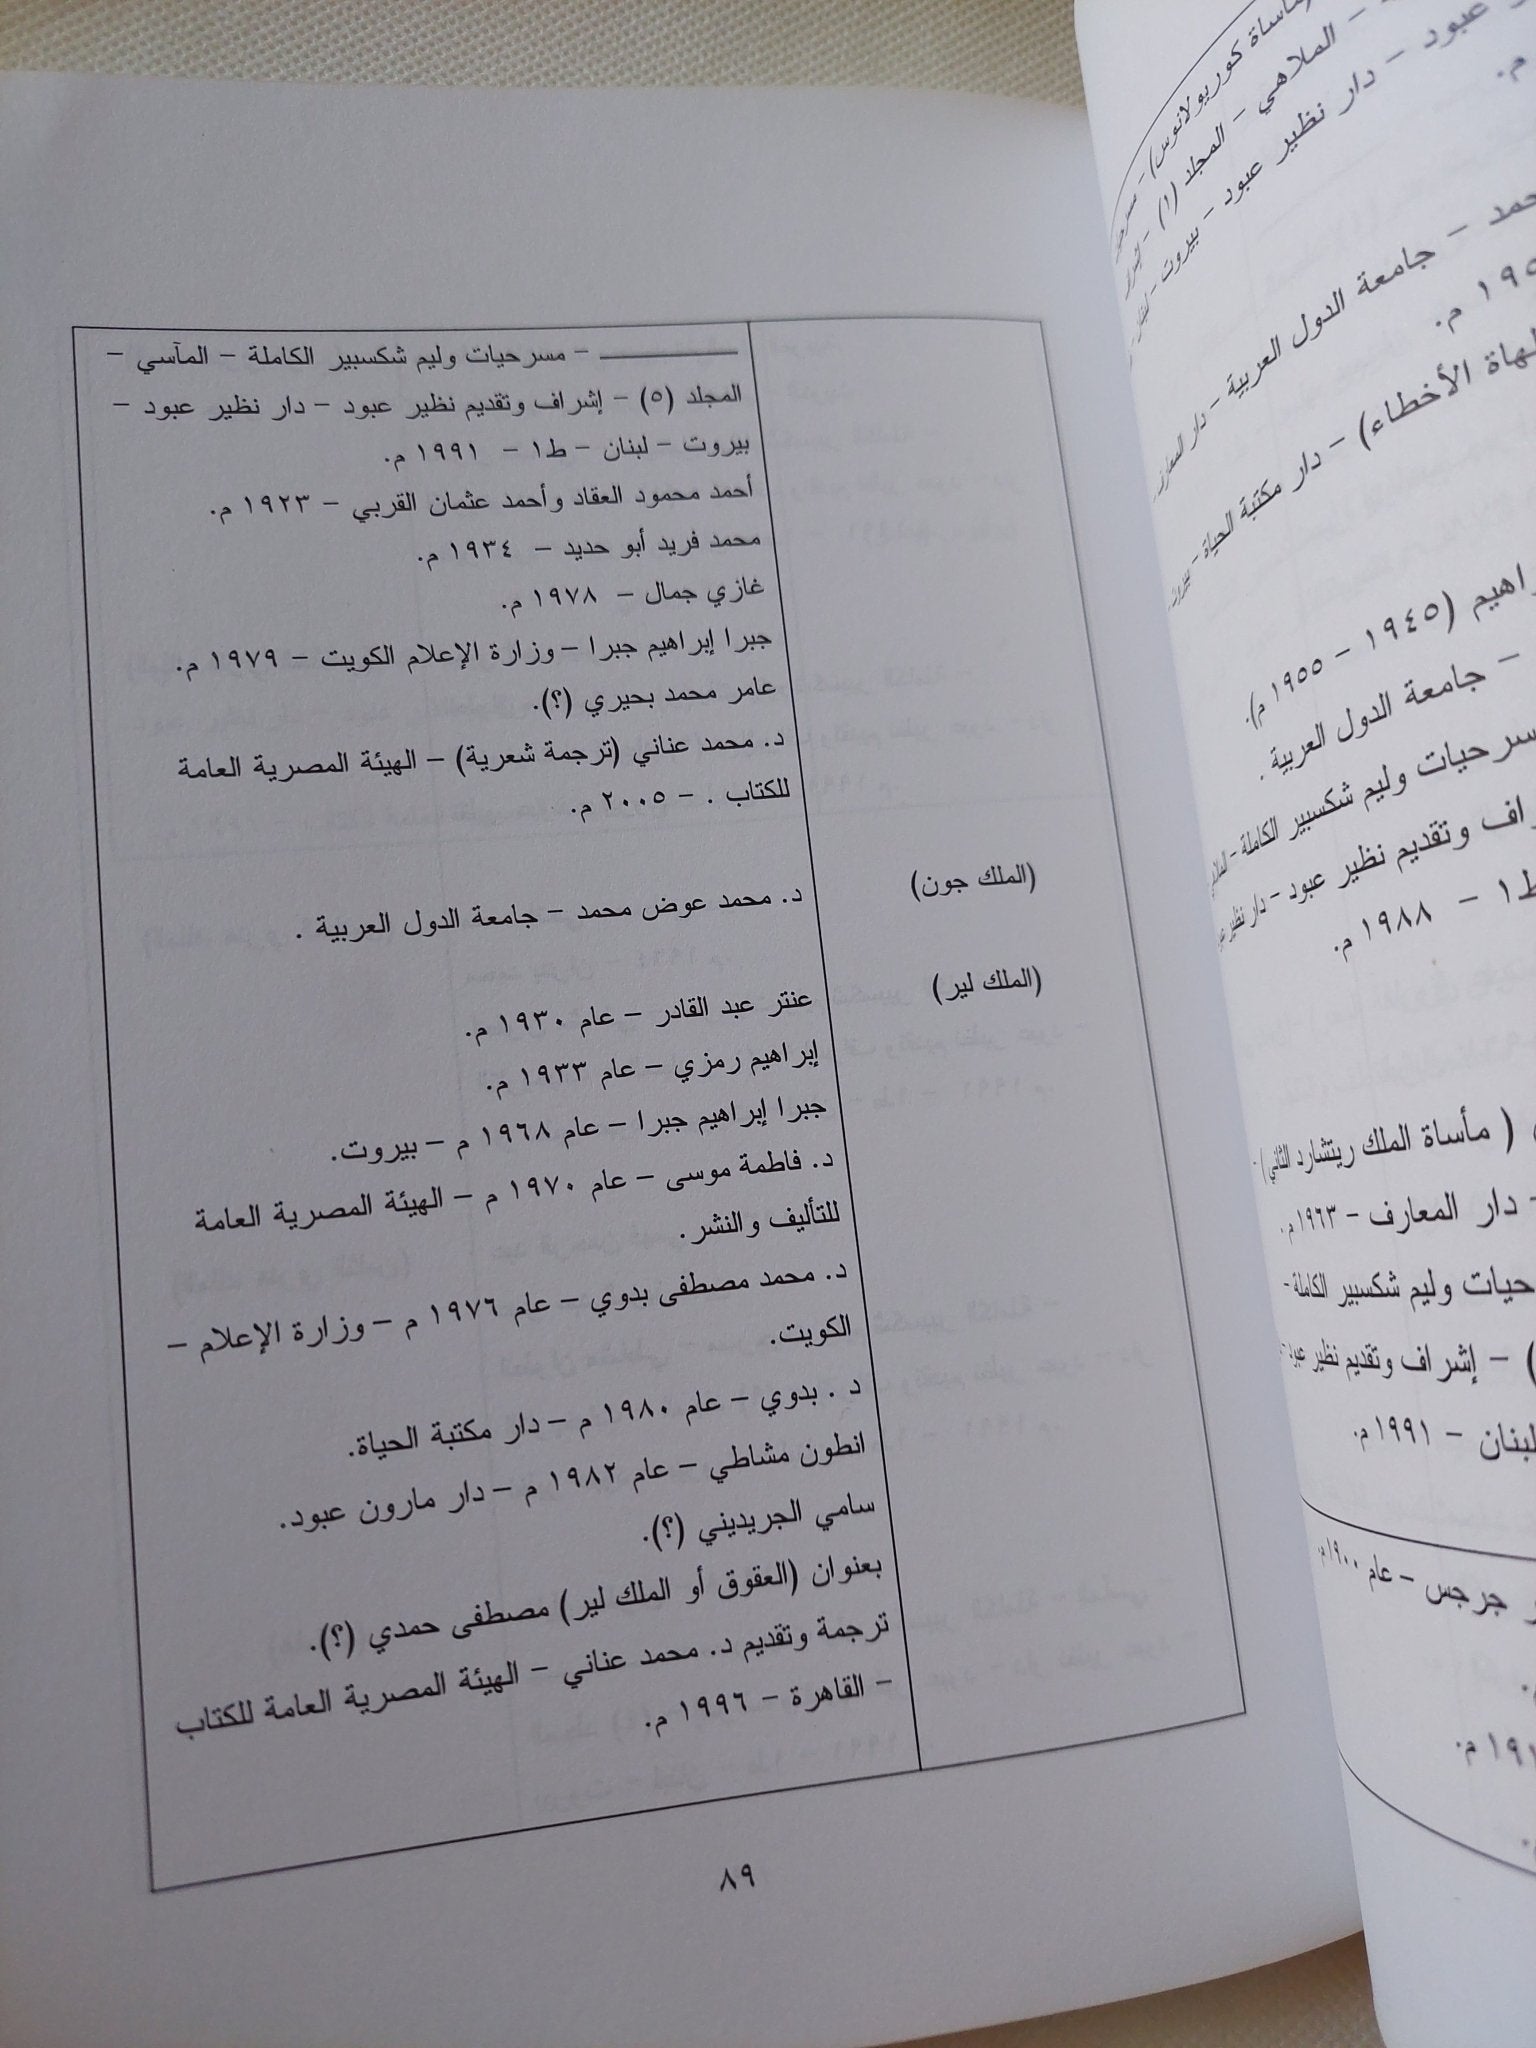 – مسرحيات وليم شكسبير الكاملة – المآسي –
المجلد (٥) – إشراف وتقديم نظير عبود – دار نظير عبود –
بيروت – لبنان – ط١ – ١٩٩١ م.
أحمد محمود العقاد وأحمد عثمان القربي – ١٩٢٣ م.
محمد فريد أبو حديد – ١٩٣٤ م.
غازي جمال – ١٩٧٨ م.
جبرا إبراهيم جبرا – وزارة الإعلام الكويت – ١٩٧٩ م.
عامر محمد بحيري (؟).
د. محمد عناني (ترجمة شعرية) – الهيئة المصرية العامة
للكتاب . – ٢٠٠٥ م.
(الملك جون)
د. محمد عوض محمد – جامعة الدول العربية .
(الملك لير)
عنتر عبد القادر – عام ١٩٣٠ م.
إبراهيم رمزي – عام ١٩٣٣ م.
جبرا إبراهيم جبرا – عام ١٩٦٨ م – بيروت.
د. فاطمة موسى – عام ١٩٧٠ م – الهيئة المصرية العامة
للتأليف والنشر.
د. محمد مصطفى بدوي – عام ١٩٧٦ م – وزارة الإعلام –
الكويت.
د . بدوي – عام ١٩٨٠ م – دار مكتبة الحياة.
انطون مشاطي – عام ١٩٨٢ م – دار مارون عبود.
سامي الجريديني (؟).
بعنوان (العقوق أو الملك لير) مصطفى حمدي (؟).
ترجمة وتقديم د. محمد عناني – الهيئة المصرية العامة للكتاب
– القاهرة – ١٩٩٦ م.
٨٩
كوريولانوس) –
– الملاهي – المجلد (١) –
عبود – دار نظير عبود – بيروت –
م.
– جامعة الدول العربية – دار المعارف
م.
الأخطاء) – دار مكتبة الحياة – بيروت
(١٩٤٥ – ١٩٥٥ م).
– جامعة الدول العربية .
وليم شكسبير الكاملة –
وتقديم نظير عبود – دار نظير
ط١ – ١٩٨٨ م.
( مأساة الملك ريتشارد الثاني) –
– دار المعارف – ١٩٦٣ م.
وليم شكسبير الكاملة –
– إشراف وتقديم نظير عبود –
لبنان – ١٩٩١ م.
جرجس – عام ١٩٠٠ م.
م.